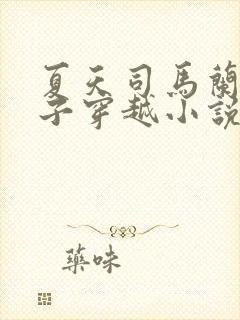 夏天司馬蘭
子穿越小說
藥味